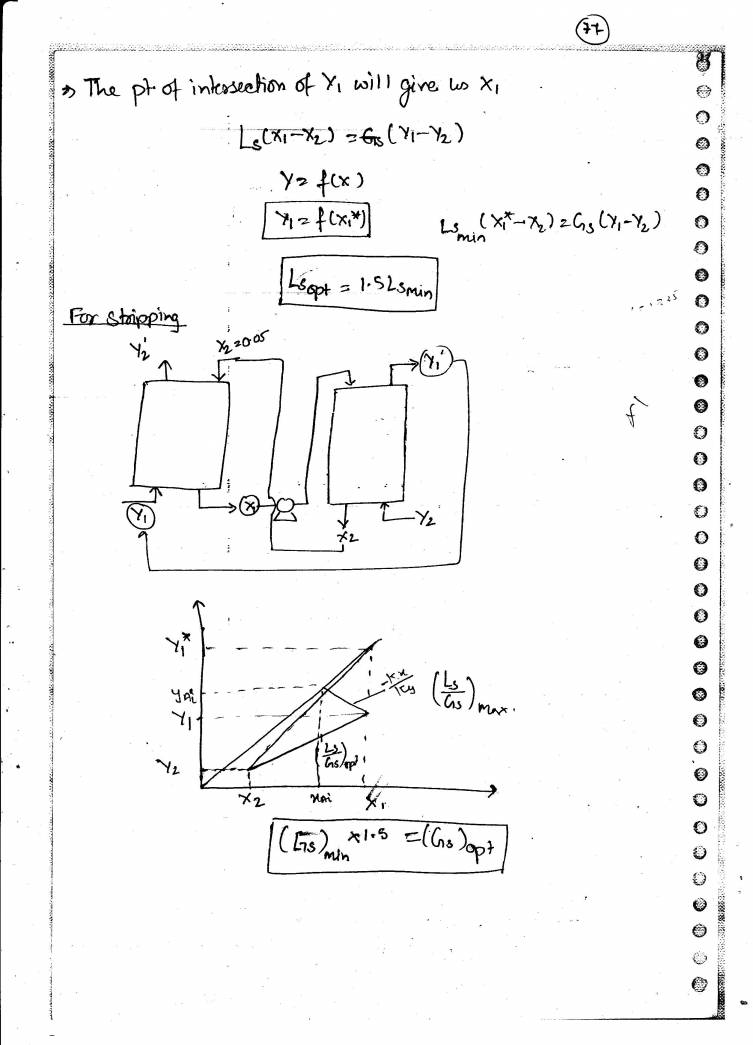 77
⇒ The pt of intersection of Y₁ will give us X₁
Ls(X₁-X₂) = Gs(Y₁-Y₂)
Y = f(x)
Y₁ = f(X₁*)
Ls min (X₁*-X₂) = Gs(Y₁-Y₂)
Ls opt = 1.5 Ls min
For Stripping
Y₂' X₂=0.05 Y₁'
Y₁ X₁ X₂ Y₂
Y₁*
yAi -kx/ky (Ls/Gs) max.
Y₁
Y₂ (Ls/Gs) opt
X₂ xAi X₁
(Gs) min × 1.5 = (Gs) opt